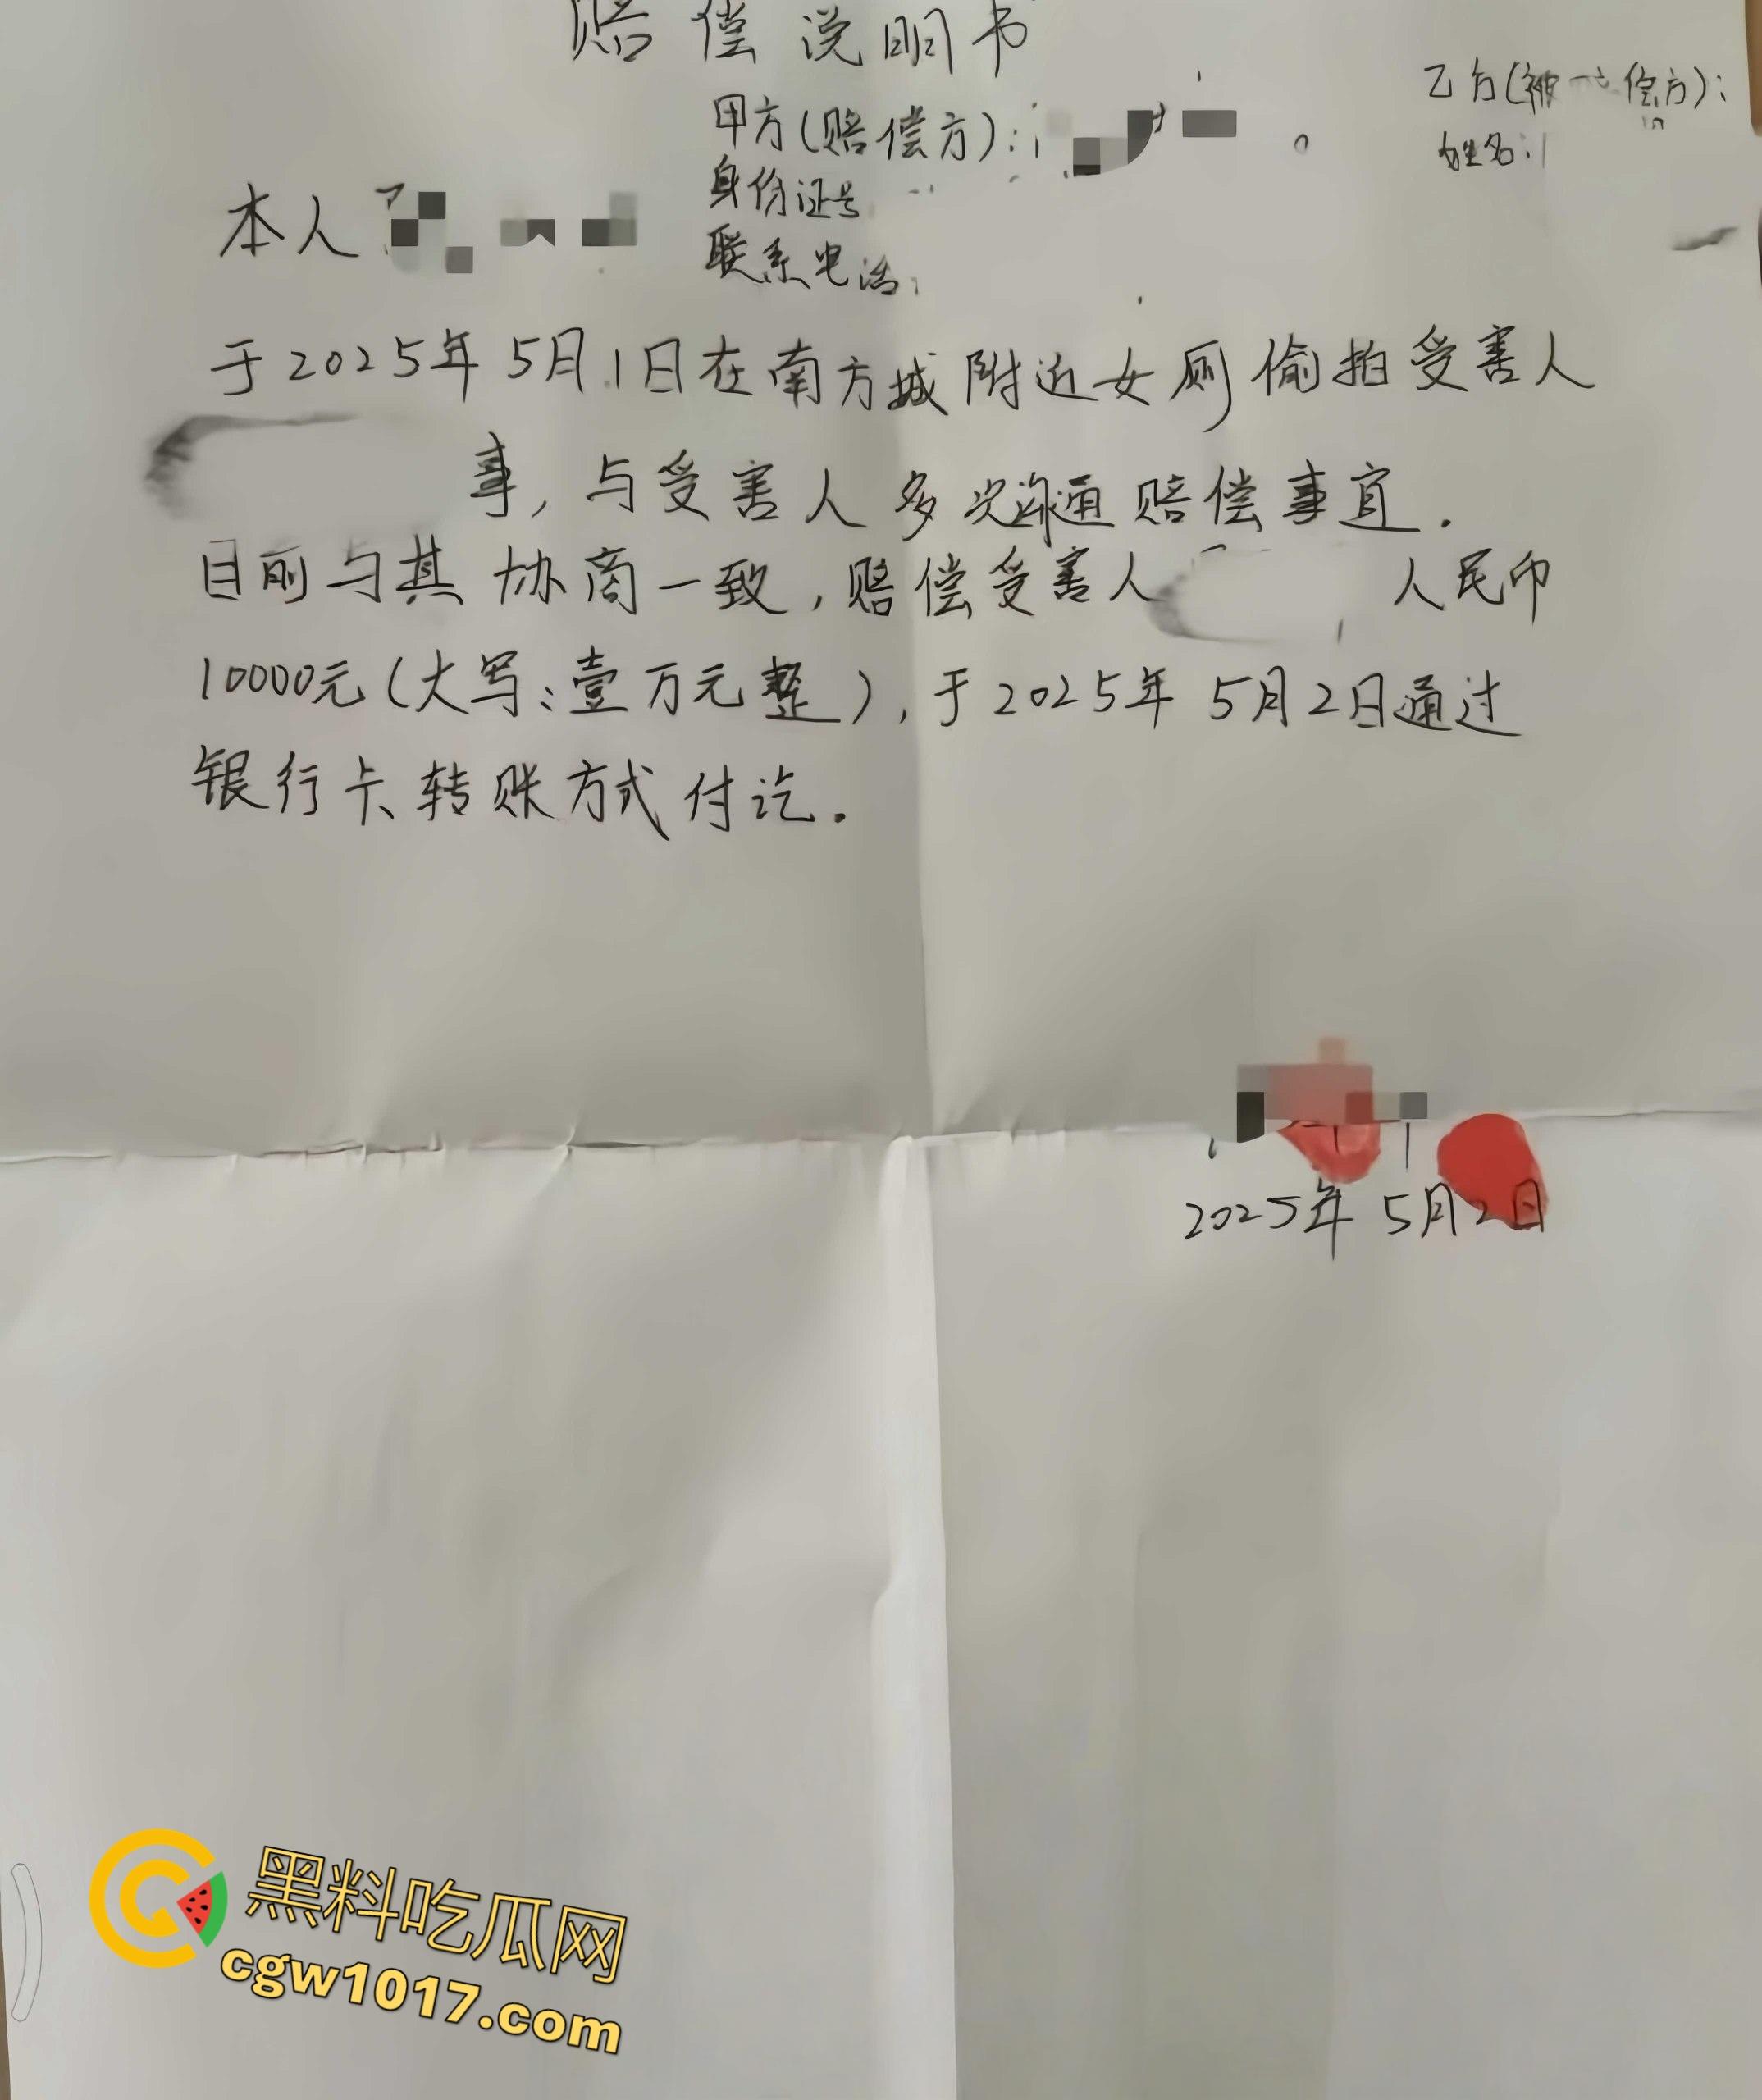 赔偿说明书
甲方(赔偿方):
身份证号
联系电话:
乙方(被 偿方):
姓名:
本人
于2025年5月1日在南方城附近女厕偷拍受害人
事,与受害人多次沟通赔偿事宜.
日前与其协商一致,赔偿受害人 人民币
10000元(大写:壹万元整),于2025年5月2日通过
银行卡转账方式付讫.
2025年5月2日
黑料吃瓜网
cgw1017.com